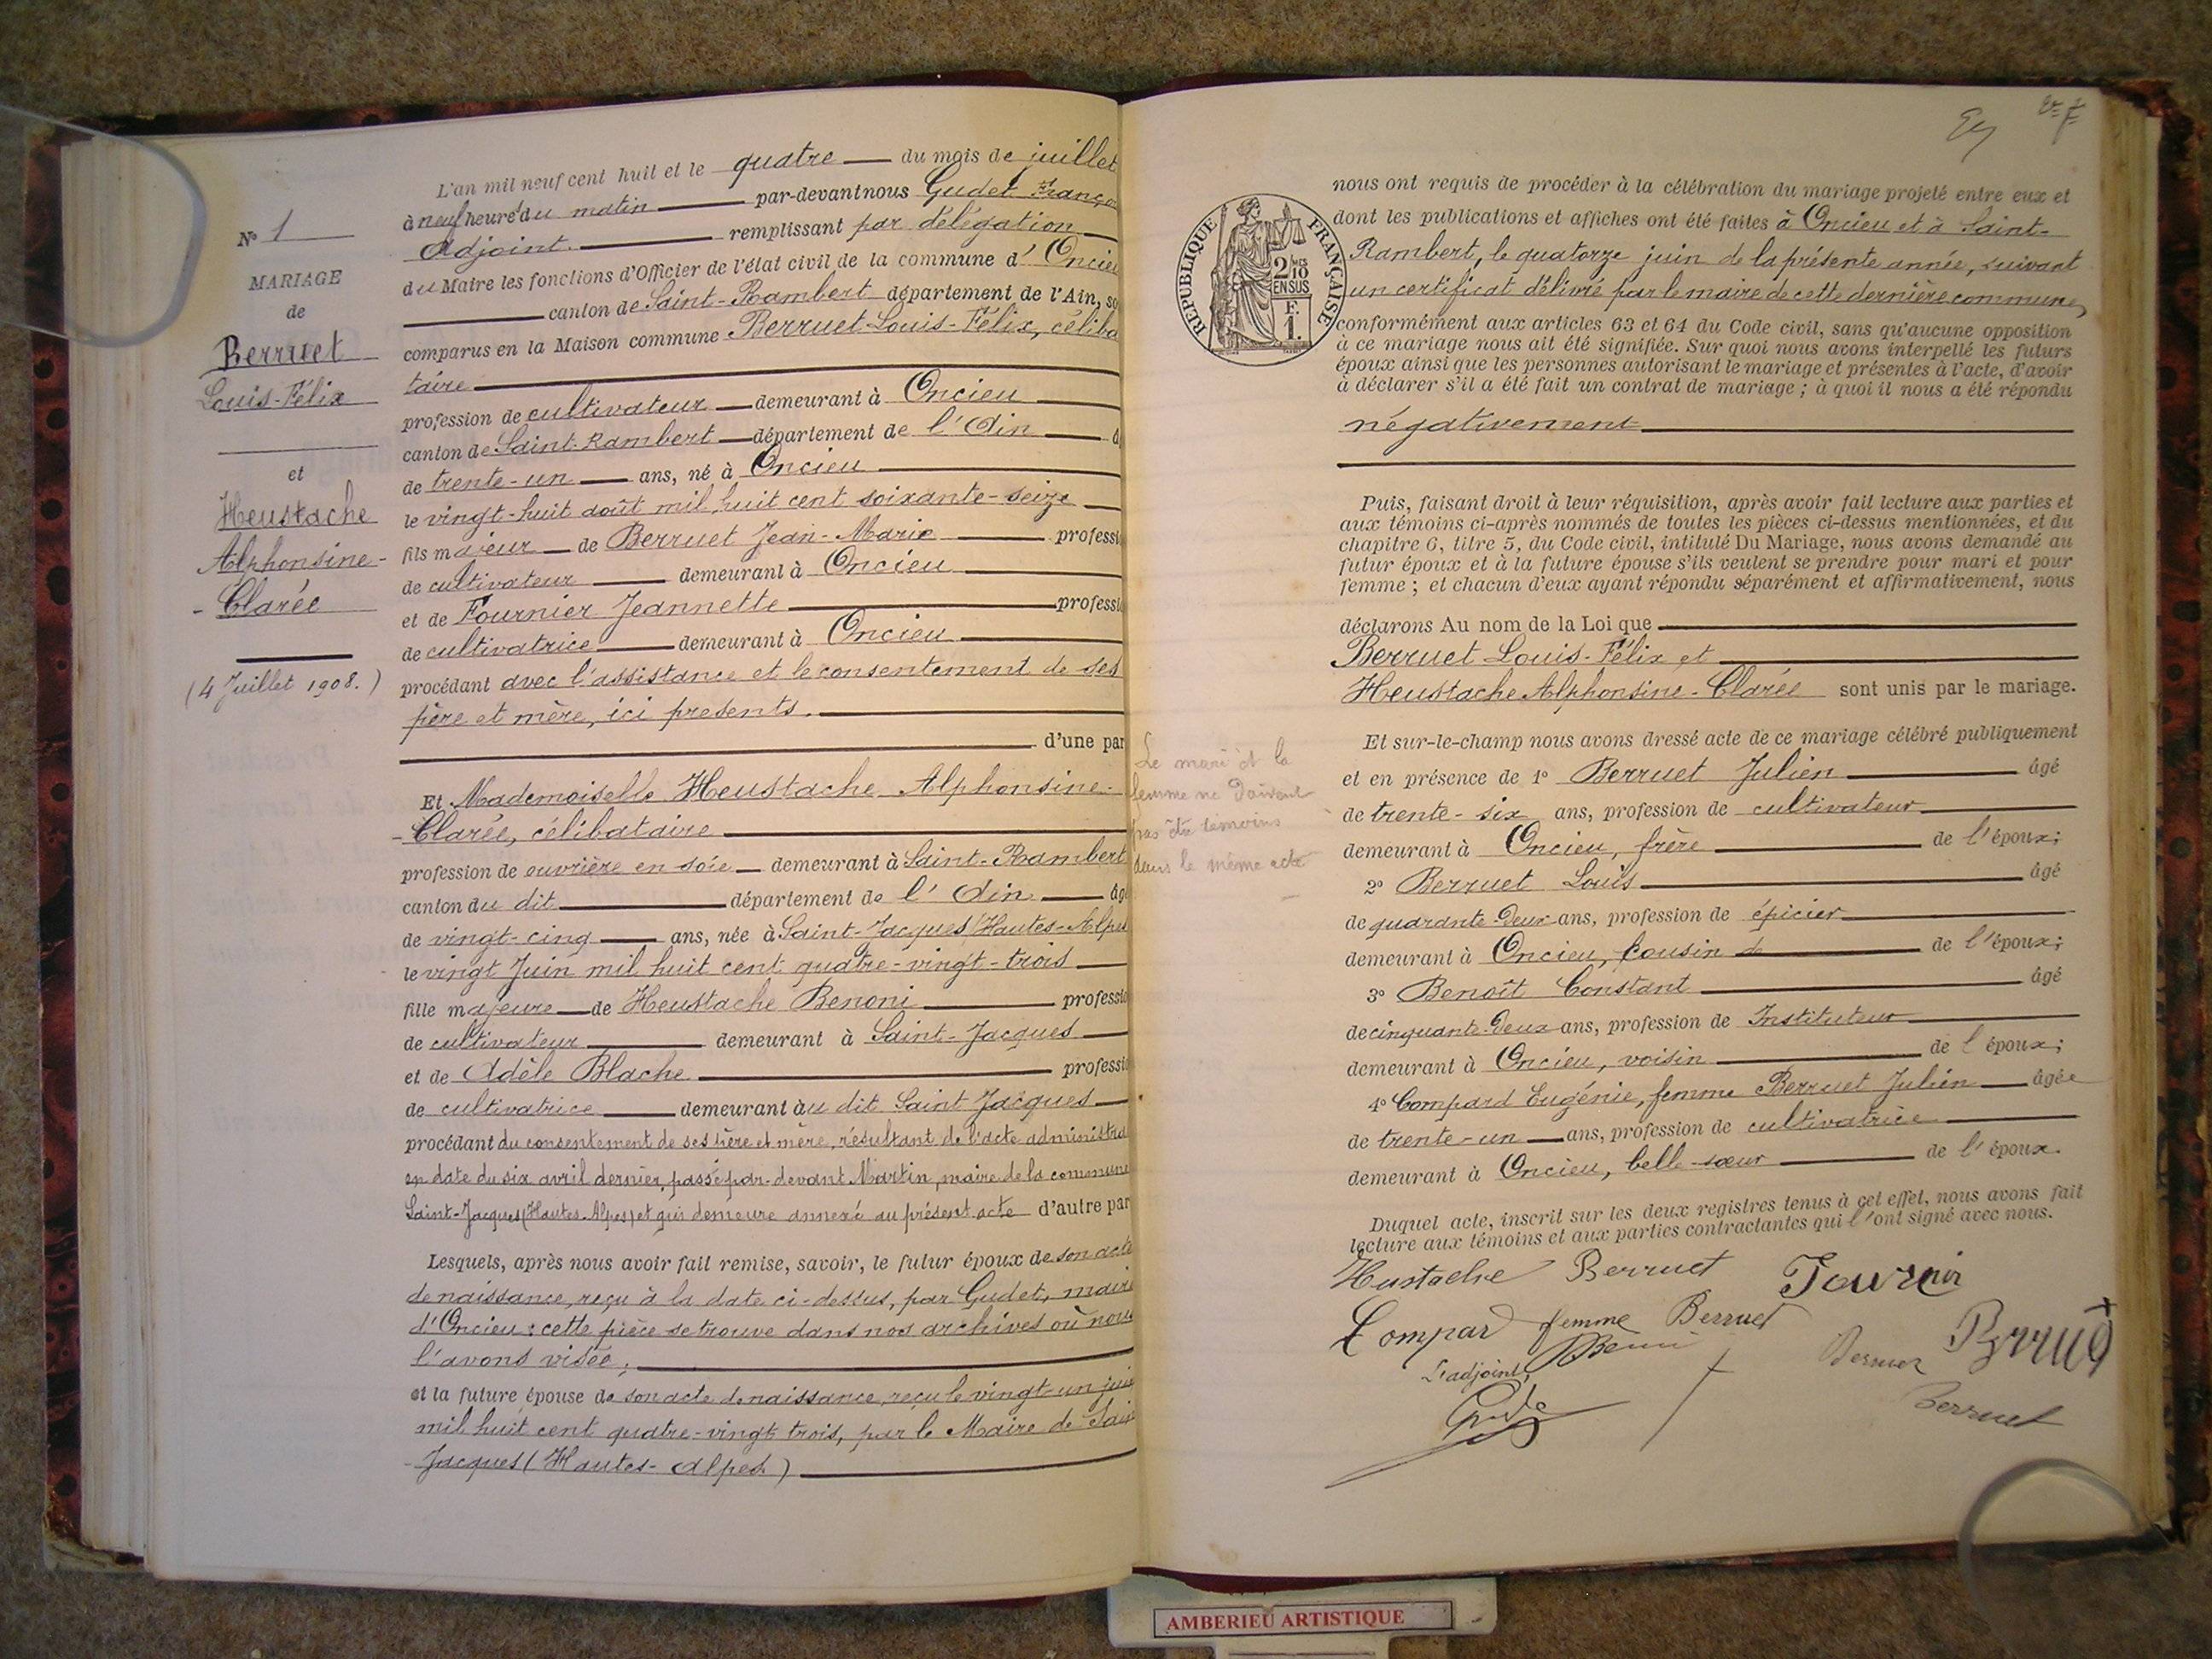 N° 1
MARIAGE
de
Berruet
Louis-Félix
et
Heustache
Alphonsine-
-Clarée
(4 Juillet 1908.)
L'an mil neuf cent huit et le quatre du mois de juillet
à neuf heures du matin par-devant nous Gudet Franço
Adjoint. remplissant par délégation
du Maire les fonctions d'Officier de l'état civil de la commune d' Oncieu
canton de Saint-Rambert département de l'Ain, so
comparus en la Maison commune Berruet Louis-Félix, céliba
taire
profession de cultivateur demeurant à Oncieu
canton de Saint-Rambert département de l'Ain
de trente-un ans, né à Oncieu
le vingt-huit août mil huit cent soixante-seize
fils majeur de Berruet Jean-Marie professi
de cultivateur demeurant à Oncieu
et de Fournier Jeannette professi
de cultivatrice demeurant à Oncieu
procédant avec l'assistance et le consentement de ses
père et mère, ici presents.
d'une par
Et Mademoiselle Heustache Alphonsine-
-Clarée, célibataire
profession de ouvrière en soie demeurant à Saint-Rambert
canton du dit département de l'Ain âg
de vingt-cinq ans, née à Saint-Jacques (Hautes-Alpes
le vingt Juin mil huit cent quatre-vingt-trois
fille majeure de Heustache Benoni professio
de cultivateur demeurant à Saint-Jacques
et de Adèle Blache professi
de cultivatrice demeurant au dit Saint Jacques
procédant du consentement de ses père et mère, résultant de l'acte administra
en date du six avril dernier, passé par-devant Martin, maire de la commune
Saint-Jacques (Hautes-Alpes) et qui demeure annexé au présent acte d'autre par
Lesquels, après nous avoir fait remise, savoir, le futur époux de son acte
de naissance, reçu à la date ci-dessus, par Gudet, maire
d'Oncieu; cette pièce se trouve dans nos archives où nous
l'avons visée;
et la future épouse de son acte de naissance, reçu le vingt-un juin
mil huit cent quatre-vingt trois, par le Maire de Sain
-Jacques (Hautes-Alpes)
Le mari et la
femme ne doivent
pas être témoins
dans le même acte
REPUBLIQUE FRANÇAISE
2/10 MES
EN SUS
F.
1.
nous ont requis de procéder à la célébration du mariage projeté entre eux et
dont les publications et affiches ont été faites à Oncieu et à Saint-
Rambert, le quatorze juin de la présente année, suivant
un certificat délivré par le maire de cette dernière commune,
conformément aux articles 63 et 64 du Code civil, sans qu'aucune opposition
à ce mariage nous ait été signifiée. Sur quoi nous avons interpellé les futurs
époux ainsi que les personnes autorisant le mariage et présentes à l'acte, d'avoir
à déclarer s'il a été fait un contrat de mariage; à quoi il nous a été répondu
négativement
Puis, faisant droit à leur réquisition, après avoir fait lecture aux parties et
aux témoins ci-après nommés de toutes les pièces ci-dessus mentionnées, et du
chapitre 6, titre 5, du Code civil, intitulé Du Mariage, nous avons demandé au
futur époux et à la future épouse s'ils veulent se prendre pour mari et pour
femme; et chacun d'eux ayant répondu séparément et affirmativement, nous
déclarons Au nom de la Loi que
Berruet Louis-Félix et
Heustache Alphonsine-Clarée sont unis par le mariage.
Et sur-le-champ nous avons dressé acte de ce mariage célébré publiquement
et en présence de 1° Berruet Julien âgé
de trente-six ans, profession de cultivateur
demeurant à Oncieu, frère de l'époux;
2° Berruet Louis âgé
de quarante-deux ans, profession de épicier
demeurant à Oncieu, cousin de de l'époux;
3° Benoît Constant âgé
de cinquante-deux ans, profession de Instituteur
demeurant à Oncieu, voisin de l'époux;
4° Compard Eugénie, femme Berruet Julien âgée
de trente-un ans, profession de cultivatrice
demeurant à Oncieu, belle-sœur de l'époux.
Duquel acte, inscrit sur les deux registres tenus à cet effet, nous avons fait
lecture aux témoins et aux parties contractantes qui l'ont signé avec nous.
Hustache Berruet
Compar femme Berruet
L'adjoint,
Berruet
AMBERIEU ARTISTIQUE